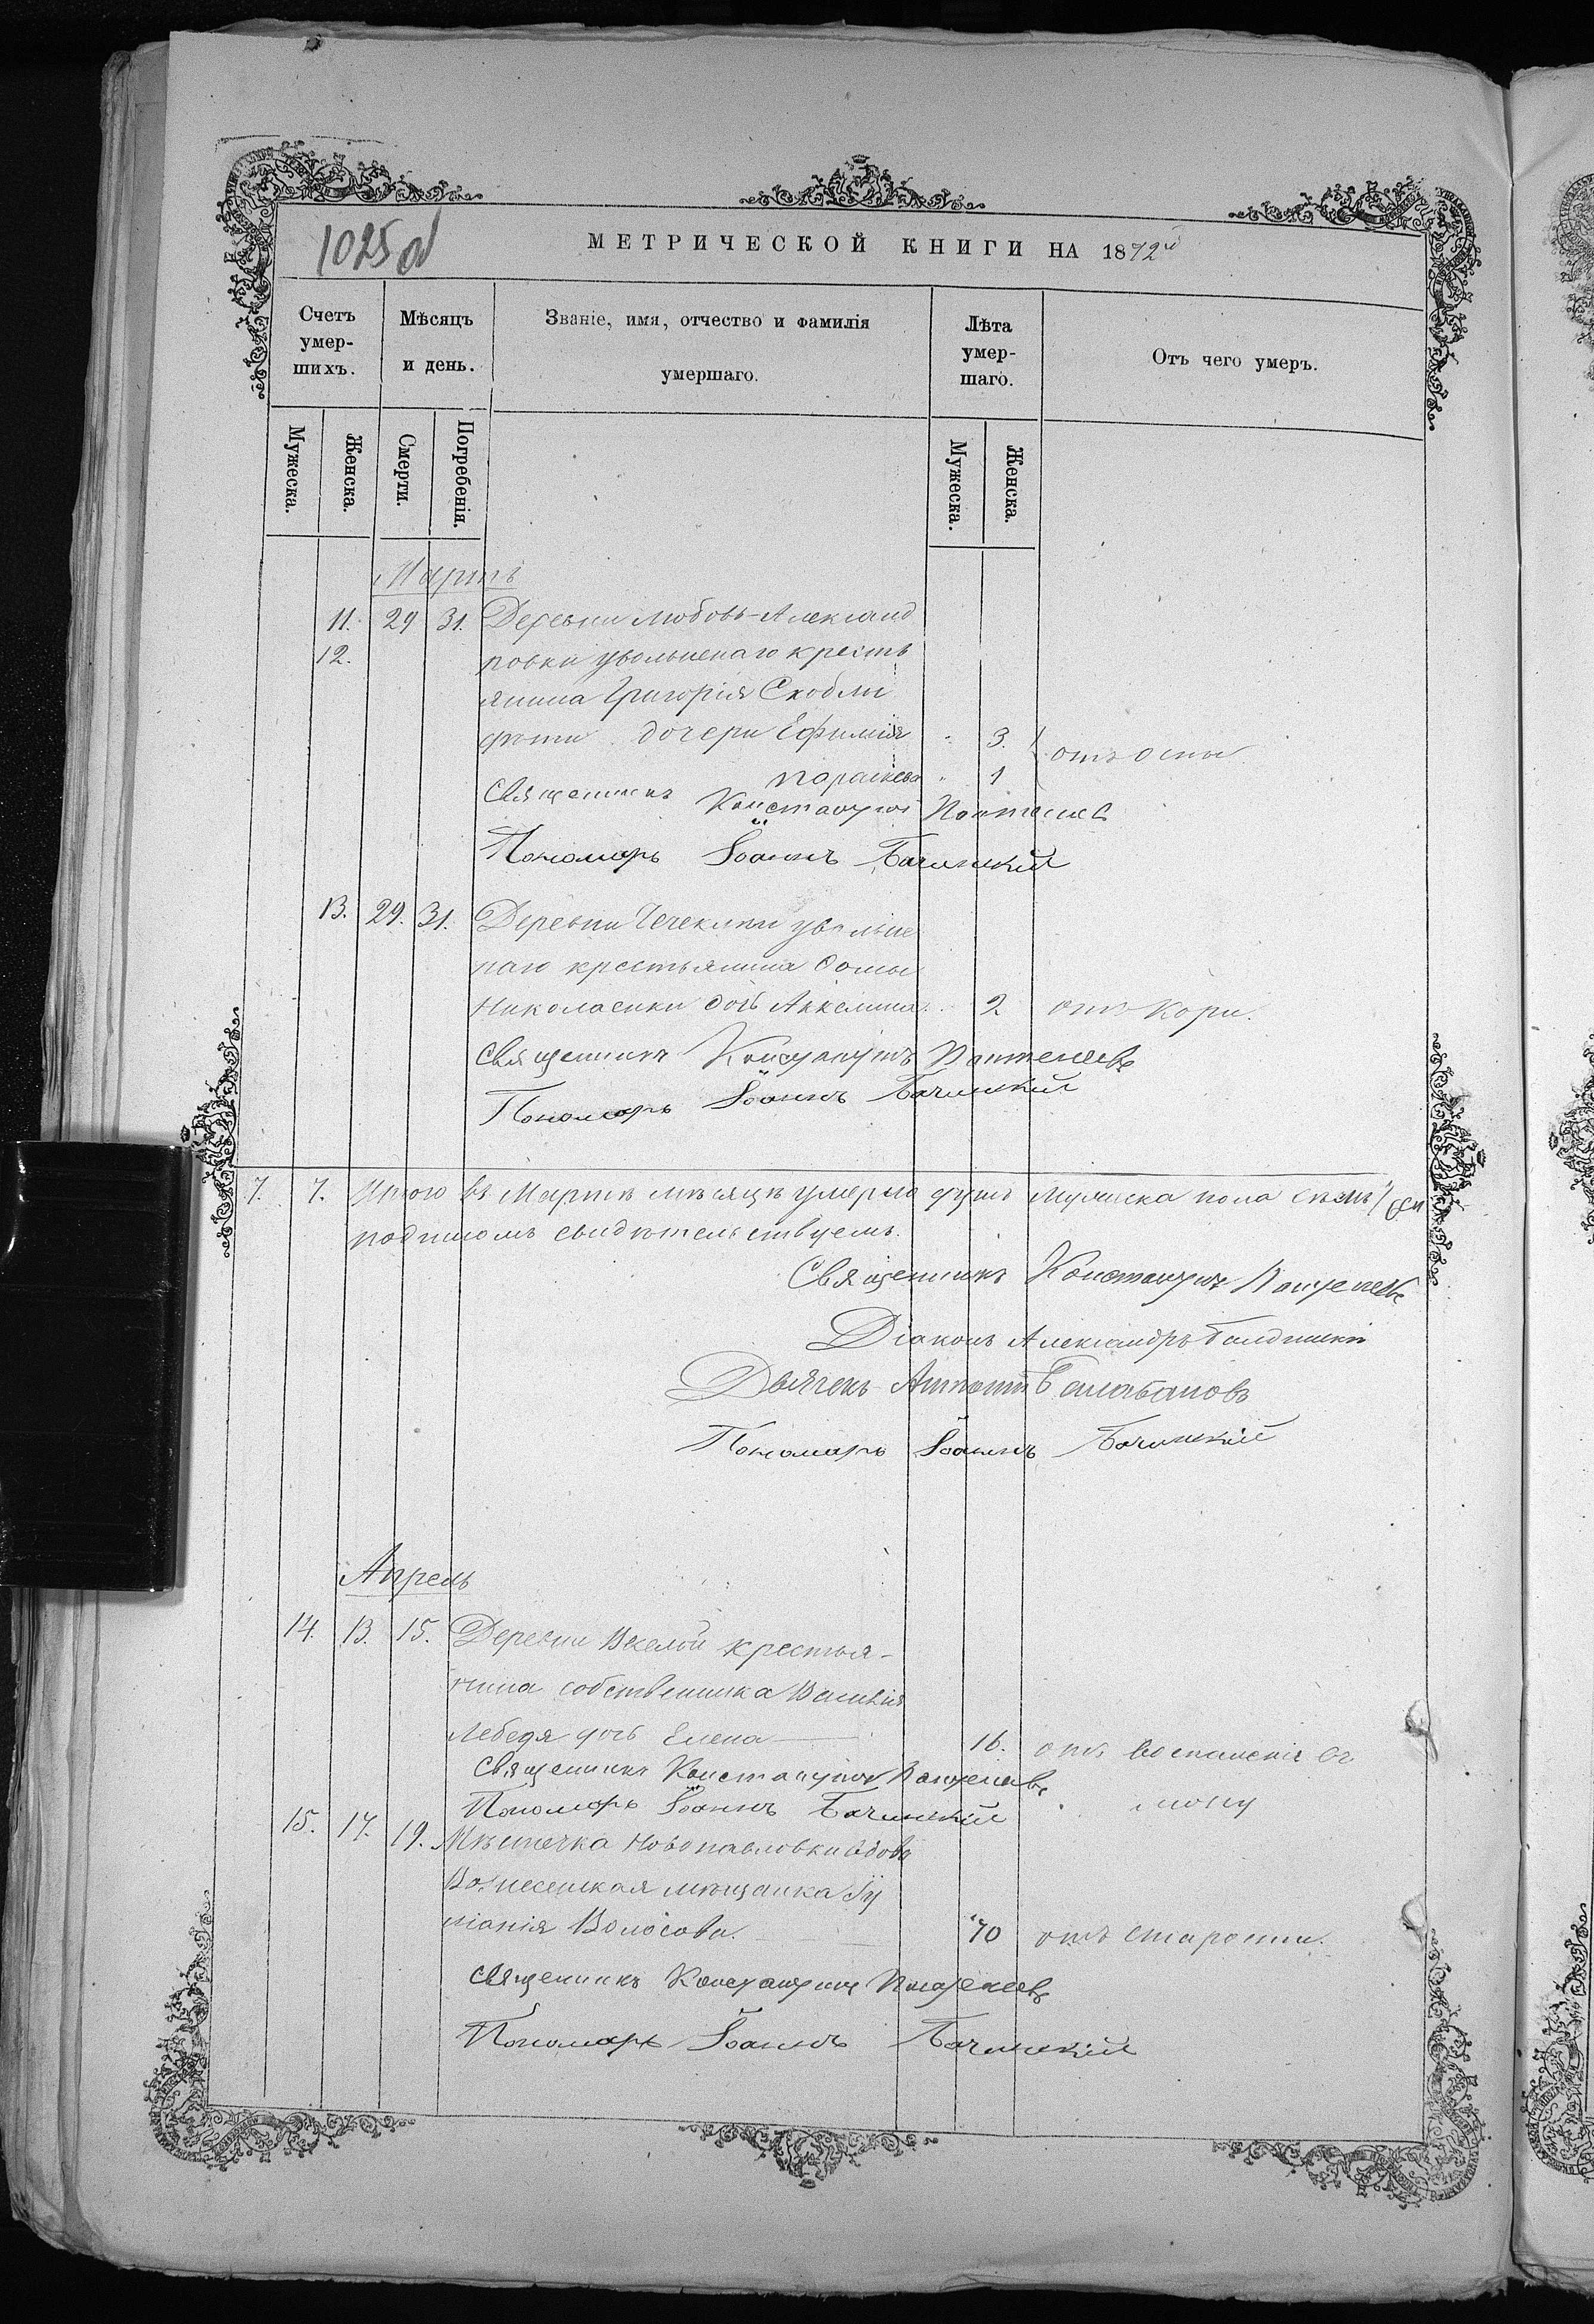 1025 об
МЕТРИЧЕСКОЙ КНИГИ НА 1872й
Счетъ умер-шихъ.
Мѣсяцъ и день.
Званіе, имя, отчество и фамилія умершаго.
Лѣта умер-шаго.
Отъ чего умеръ.
Мужеска. Женска. Смерти. Погребенія. Мужеска. Женска.
Мартъ
11. 29 31. Деревни Любовь-Александ
12. ровки увольненаго кресть
янина Григорія Скобли
дочери Ефимія 3. отъ оспы
Параскева 1
Священникъ Константинъ Пантелеев
Пономарь Іоаннъ Бачинскій
13. 29. 31. Деревни Чечеклии увольне
наго крестьянина Фомы
Николаенки дочь Аккелина 2 отъ кори.
Священникъ Константинъ Пантелеевъ
Пономарь Іоаннъ Бачинскій
7. 7. Итого въ Мартѣ мѣсяцѣ умерло душъ мужеска пола семь
подписомъ свидѣтельствуемъ.
Священникъ Константинъ Пантелеевъ
Діаконъ Александръ
Дьячекъ Антоній Балабановъ
Пономарь Іоаннъ Бачинскій
Апрель
14. 13. 15. Деревни Веселой крестья-
нина собственника Василія
Лебедя дочь Елена 16. отъ воспаленія
Священникъ Константинъ Пантелеевъ
Пономарь Іоаннъ Бачинскій
15. 17. 19. Мѣстечка Новопавловки вдова
Вознесенская мѣщанка Іу
ліанія Волосова. 70 отъ старости.
Священникъ Константинъ Пантелеевъ
Пономарь Іоаннъ Бачинскій